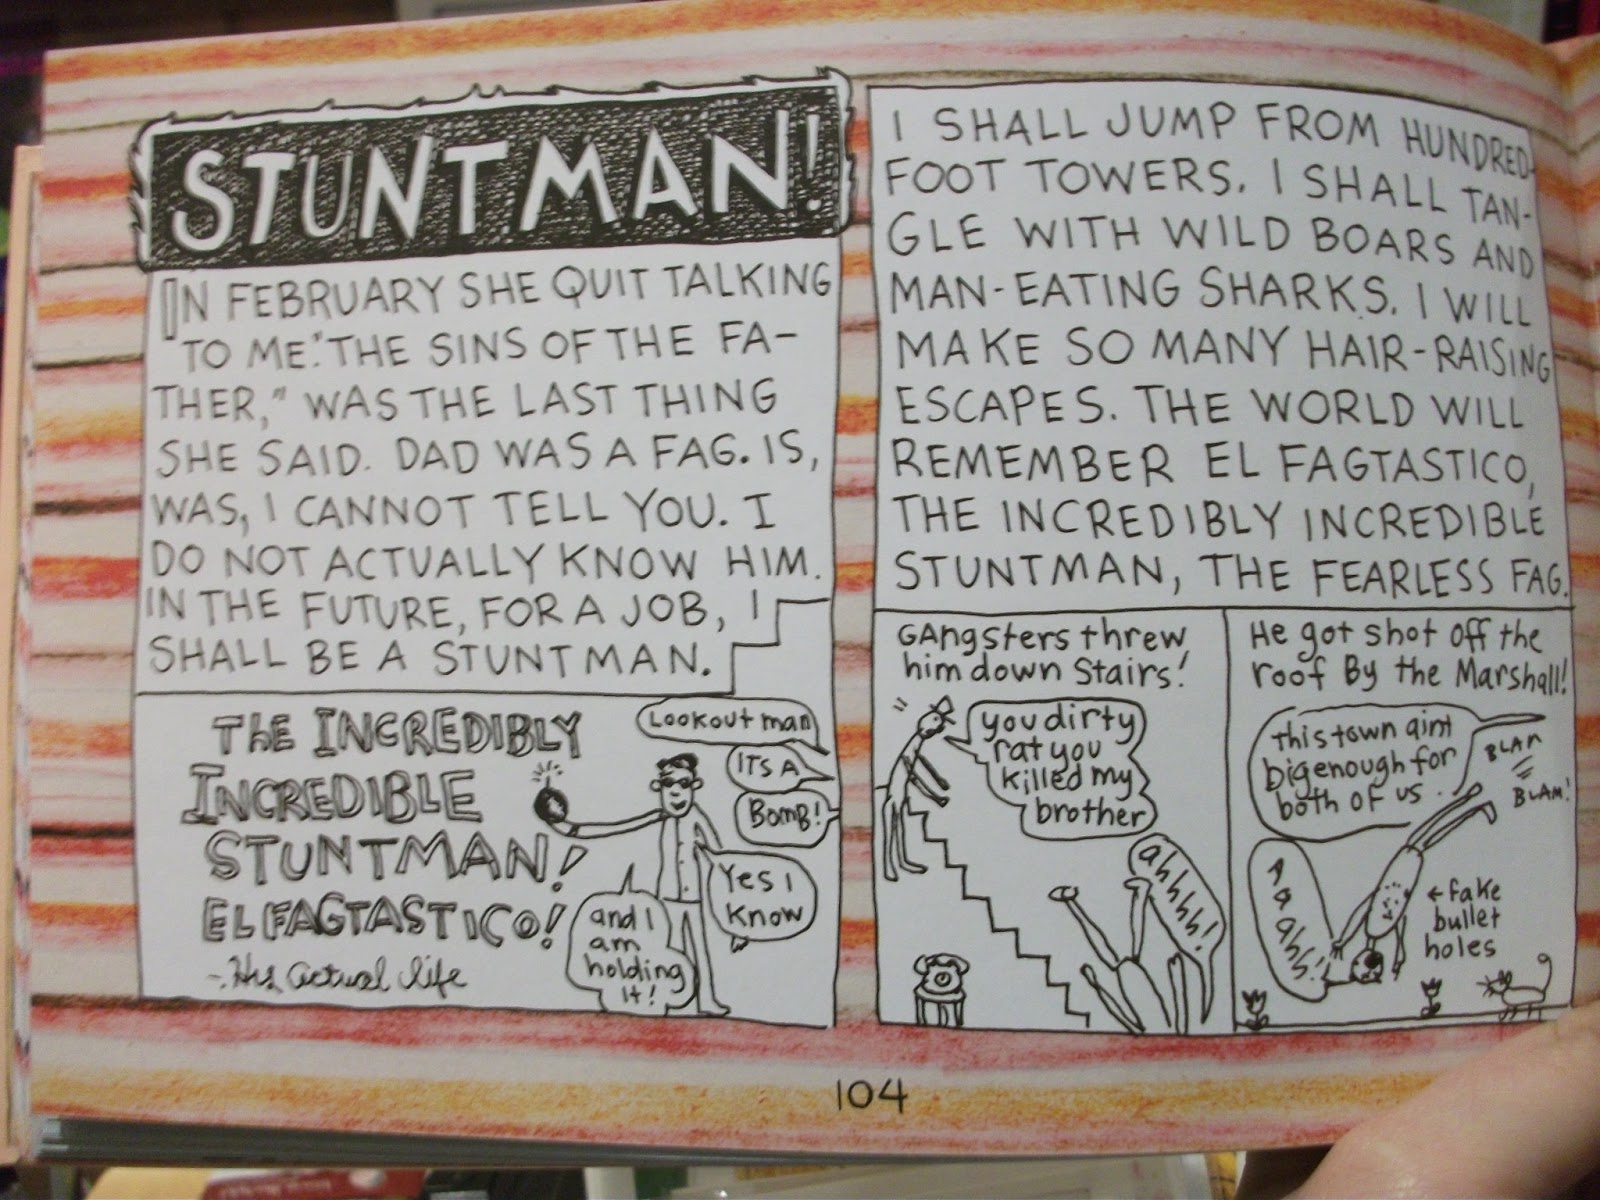 STUNTMAN!
IN FEBRUARY SHE QUIT TALKING
TO ME. "THE SINS OF THE FA-
THER," WAS THE LAST THING
SHE SAID. DAD WAS A FAG. IS,
WAS, I CANNOT TELL YOU. I
DO NOT ACTUALLY KNOW HIM.
IN THE FUTURE, FOR A JOB, I
SHALL BE A STUNTMAN.
THE INCREDIBLY
INCREDIBLE
STUNTMAN!
EL FAGTASTICO!
~His actual life
Lookout man
ITS A
BOMB!
Yes I
Know
and I
am
holding
it!
I SHALL JUMP FROM HUNDRED-
FOOT TOWERS. I SHALL TAN-
GLE WITH WILD BOARS AND
MAN-EATING SHARKS. I WILL
MAKE SO MANY HAIR-RAISING
ESCAPES. THE WORLD WILL
REMEMBER EL FAGTASTICO,
THE INCREDIBLY INCREDIBLE
STUNTMAN, THE FEARLESS FAG.
GAngsters threw
him down Stairs!
you dirty
rat you
killed my
brother
ahhhh!
He got shot off the
roof By the Marshall!
this town aint
big enough for
both of us.
BLAM
BLAM!
AAAhh!
←fake
bullet
holes
104